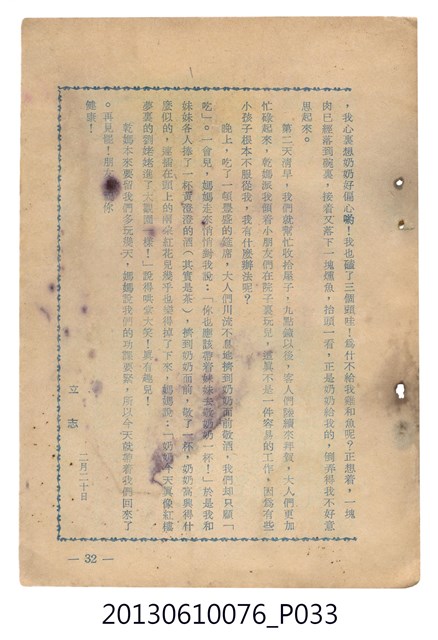 ，我心裏想奶奶好偏心喲！我也磕了三個頭哇！爲什不給我雞和魚呢？正想着，一塊
肉已經落到碗裏，接着又落下一塊燻魚，抬頭一看，正是奶奶給我的，倒弄得我不好意
思起來。
第二天清早，我們就幫忙收拾屋子，九點鐘以後，客人們陸續來拜壽，大人們更加
忙碌起來，乾媽派我領着小朋友們在院子裏玩兒，這眞不是一件容易的工作，因爲有些
小孩子根本不服從我，我有什麼辦法呢？
晚上，吃了一頓豐盛的筵席，大人們川流不息地擠到奶奶面前敬酒，我們却只顧「
吃」。一會兒，媽媽走來悄悄對我說：「你也應該帶着妹妹去敬奶奶一杯！」於是我和
妹妹各人捧了一杯黃澄澄的酒（其實是茶），擠到奶奶面前，敬了一杯，奶奶高興得什
麼似的，連插在頭上的兩朵紅花兒幾乎也樂得掉了下來，媽媽說：「奶奶今天眞像紅樓
夢裏的劉姥姥進了大觀園一樣！」說得哄堂大笑！眞有趣兒！
乾媽本來要留我們多玩幾天，媽媽說我們的功課要緊，所以今天就帶着我們回來了
。再見罷！朋友，祝你
健康！
立志
二月二十日
— 32 —
20130610076_P033